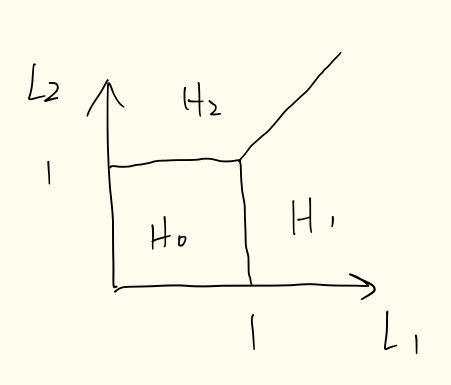 L₂
H₂
1
H₀
H₁
1
L₁